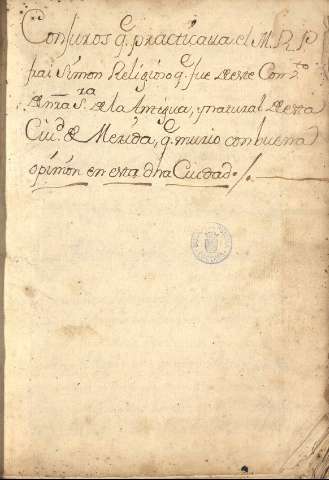 Conjuros q̃ practicaua el M. R. P.
frai Simon Religioso q̃ fue deste Con.to
de nra S.ra de la Antigua, y natural de esta
Ciu.d de Merida, q̃ murio con buena
opinion en esta dha Ciudad